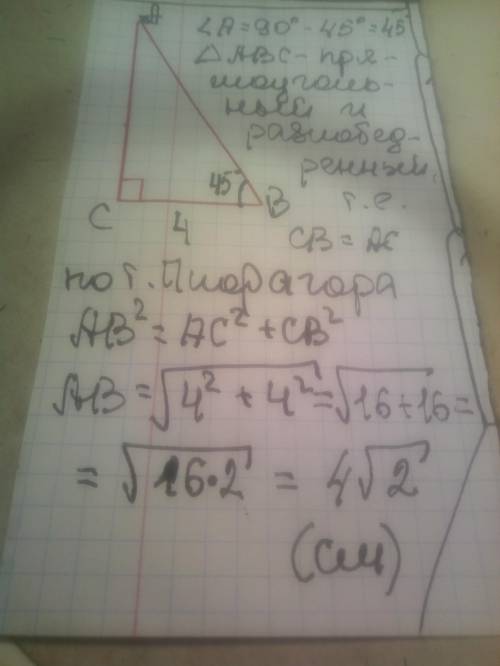 A
∠A = 90° - 45° = 45°
△ABC - пря-
моуголь-
ный и
равнобед-
ренный,
т.е.
CB = AC
45°
C
B
4
по т. Пифагора
AB² = AC² + CB²
AB = √4² + 4² = √16 + 16 =
= √16·2 = 4√2
(см)